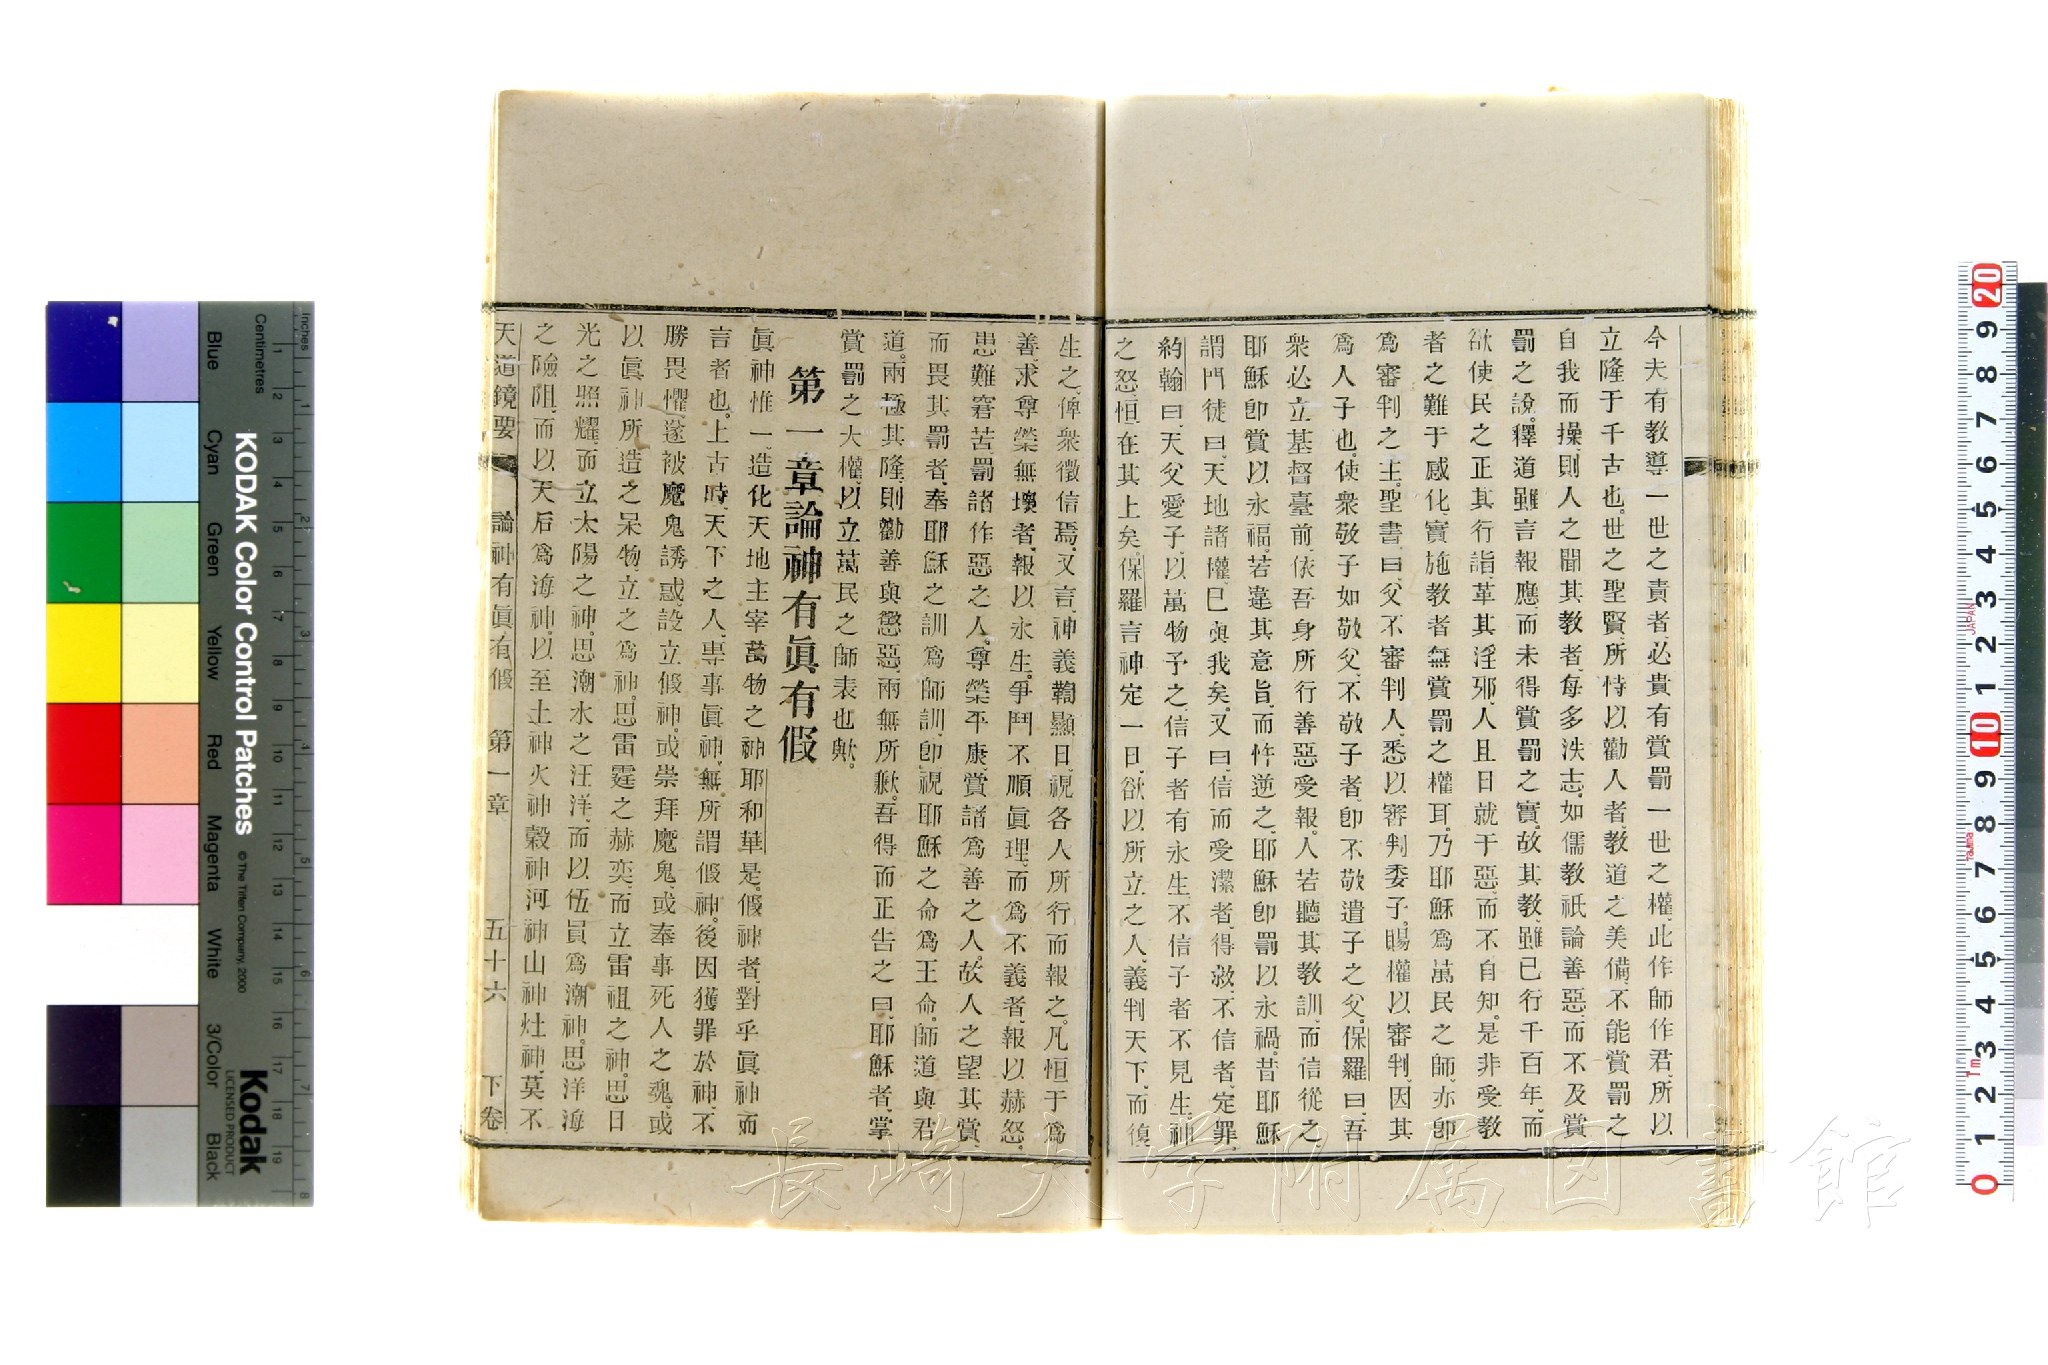 今夫有教導一世之責者、必貴有賞罰一世之權、此作師作君、所以
立隆于千古也。世之聖賢、所恃以勸人者、教道之美備、不能賞罰之
自我而操、則人之聞其教者、每多泆志、如儒教祇論善惡、而不及賞
罰之說。釋道雖言報應、而未得賞罰之實、故其教、雖已行千百年、而
欲使民之正其行詣、革其淫邪、人且日就于惡、而不自知。是非受教
者之難于感化、實施教者、無賞罰之權耳。乃耶穌為萬民之師、亦卽
為審判之主。聖書曰、父不審判人、悉以審判委子、賜權以審判、因其
為人子也。使衆敬子如敬父、不敬子者、卽不敬遣子之父。保羅曰、吾
衆必立基督臺前、依吾身所行善惡受報。人若聽其教訓、而信從之、
耶穌卽賞以永福。若違其意旨、而忤逆之、耶穌卽罰以永禍。昔耶穌
謂門徒曰、天地諸權、已與我矣。又曰、信而受潔者、得救、不信者、定罪。
約翰曰、天父愛子、以萬物予之、信子者有永生、不信子者不見生、神
之怒、恒在其上矣。保羅言神定一日、欲以所立之人、義判天下、而復
生之、俾衆徵信焉。又言、神義鞫顯日、視各人所行而報之。凡恒于為
善、求尊榮無壞者、報以永生。爭鬥不順眞理、而為不義者、報以赫怒。
患難窘苦、罰諸作惡之人、尊榮平康、賞諸為善之人。故人之望其賞、
而畏其罰者、奉耶穌之訓為師訓、卽視耶穌之命為王命。師道與君
道。兩極其隆、則勸善與懲惡、兩無所歉。吾得而正告之曰、耶穌者、掌
賞罰之大權、以立萬民之師表也歟。
第一章論神有眞有假
眞神惟一、造化天地主宰萬物之神耶和華是。假神者、對乎眞神而
言者也。上古時、天下之人、專事眞神、無所謂假神。後因獲罪於神、不
勝畏懼、遂被魔鬼誘惑、設立假神。或崇拜魔鬼、或奉事死人之魂、或
以眞神所造之呆物、立之為神。思雷霆之赫奕、而立雷祖之神。思日
光之照耀、而立太陽之神、思潮水之汪洋、而以伍員為潮神。思洋海
之險阻、而以天后為海神、以至土神火神穀神河神山神灶神、莫不
天道鏡要 論神有眞有假 第一章 五十六 下卷
長崎大学附属図書館
KODAK Color Control Patches
© The Tiffen Company, 2000
Kodak
LICENSED PRODUCT
Inches
Centimetres
Blue Cyan Green Yellow Red Magenta White 3/Color Black
1 2 3 4 5 6 7 8 9 10 11 12 13 14 15 16 17 18 19
1 2 3 4 5 6 7 8
0 1 2 3 4 5 6 7 8 9 10 1 2 3 4 5 6 7 8 9 20
1m
JAPAN